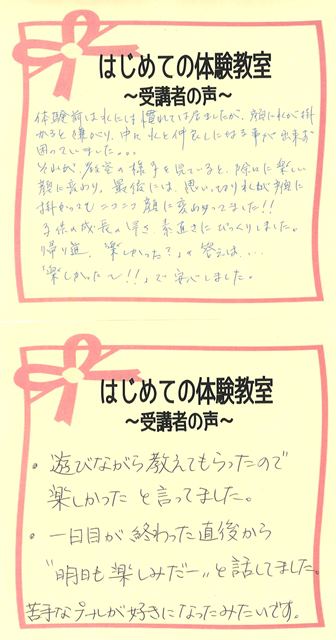 はじめての体験教室
～受講者の声～
体験前は水には慣れては居ましたが、顔に水が掛
かると嫌がり、中々水と仲良しになる事が出来ず
困っていました。。。
それが、教室の様子を見ていると、除々に楽しい
顔に変わり、最後には、思いっきり水が顔に
掛かってもニコニコ顔に変わってました!!
子供の成長の早さ、素直さにびっくりしました。
帰り道、"楽しかった?"の答えは、…
"楽しかった～!!"で安心しました。
はじめての体験教室
～受講者の声～
・遊びながら教えてもらったので
楽しかったと言ってました。
・一日目が終わった直後から
"明日も楽しみだー"と話してました。
苦手なプールが好きになったみたいです。